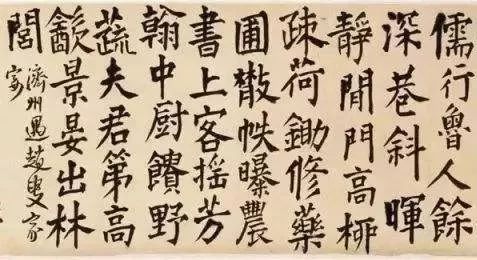 儒行魯人餘
深巷斜暉
靜閒門高柳
疎荷鋤修藥
圃散帙曝農
書上客搖芳
翰中厨饋野
蔬夫君第高
㱃景晏出林
閭
濟州過趙叟家
宴